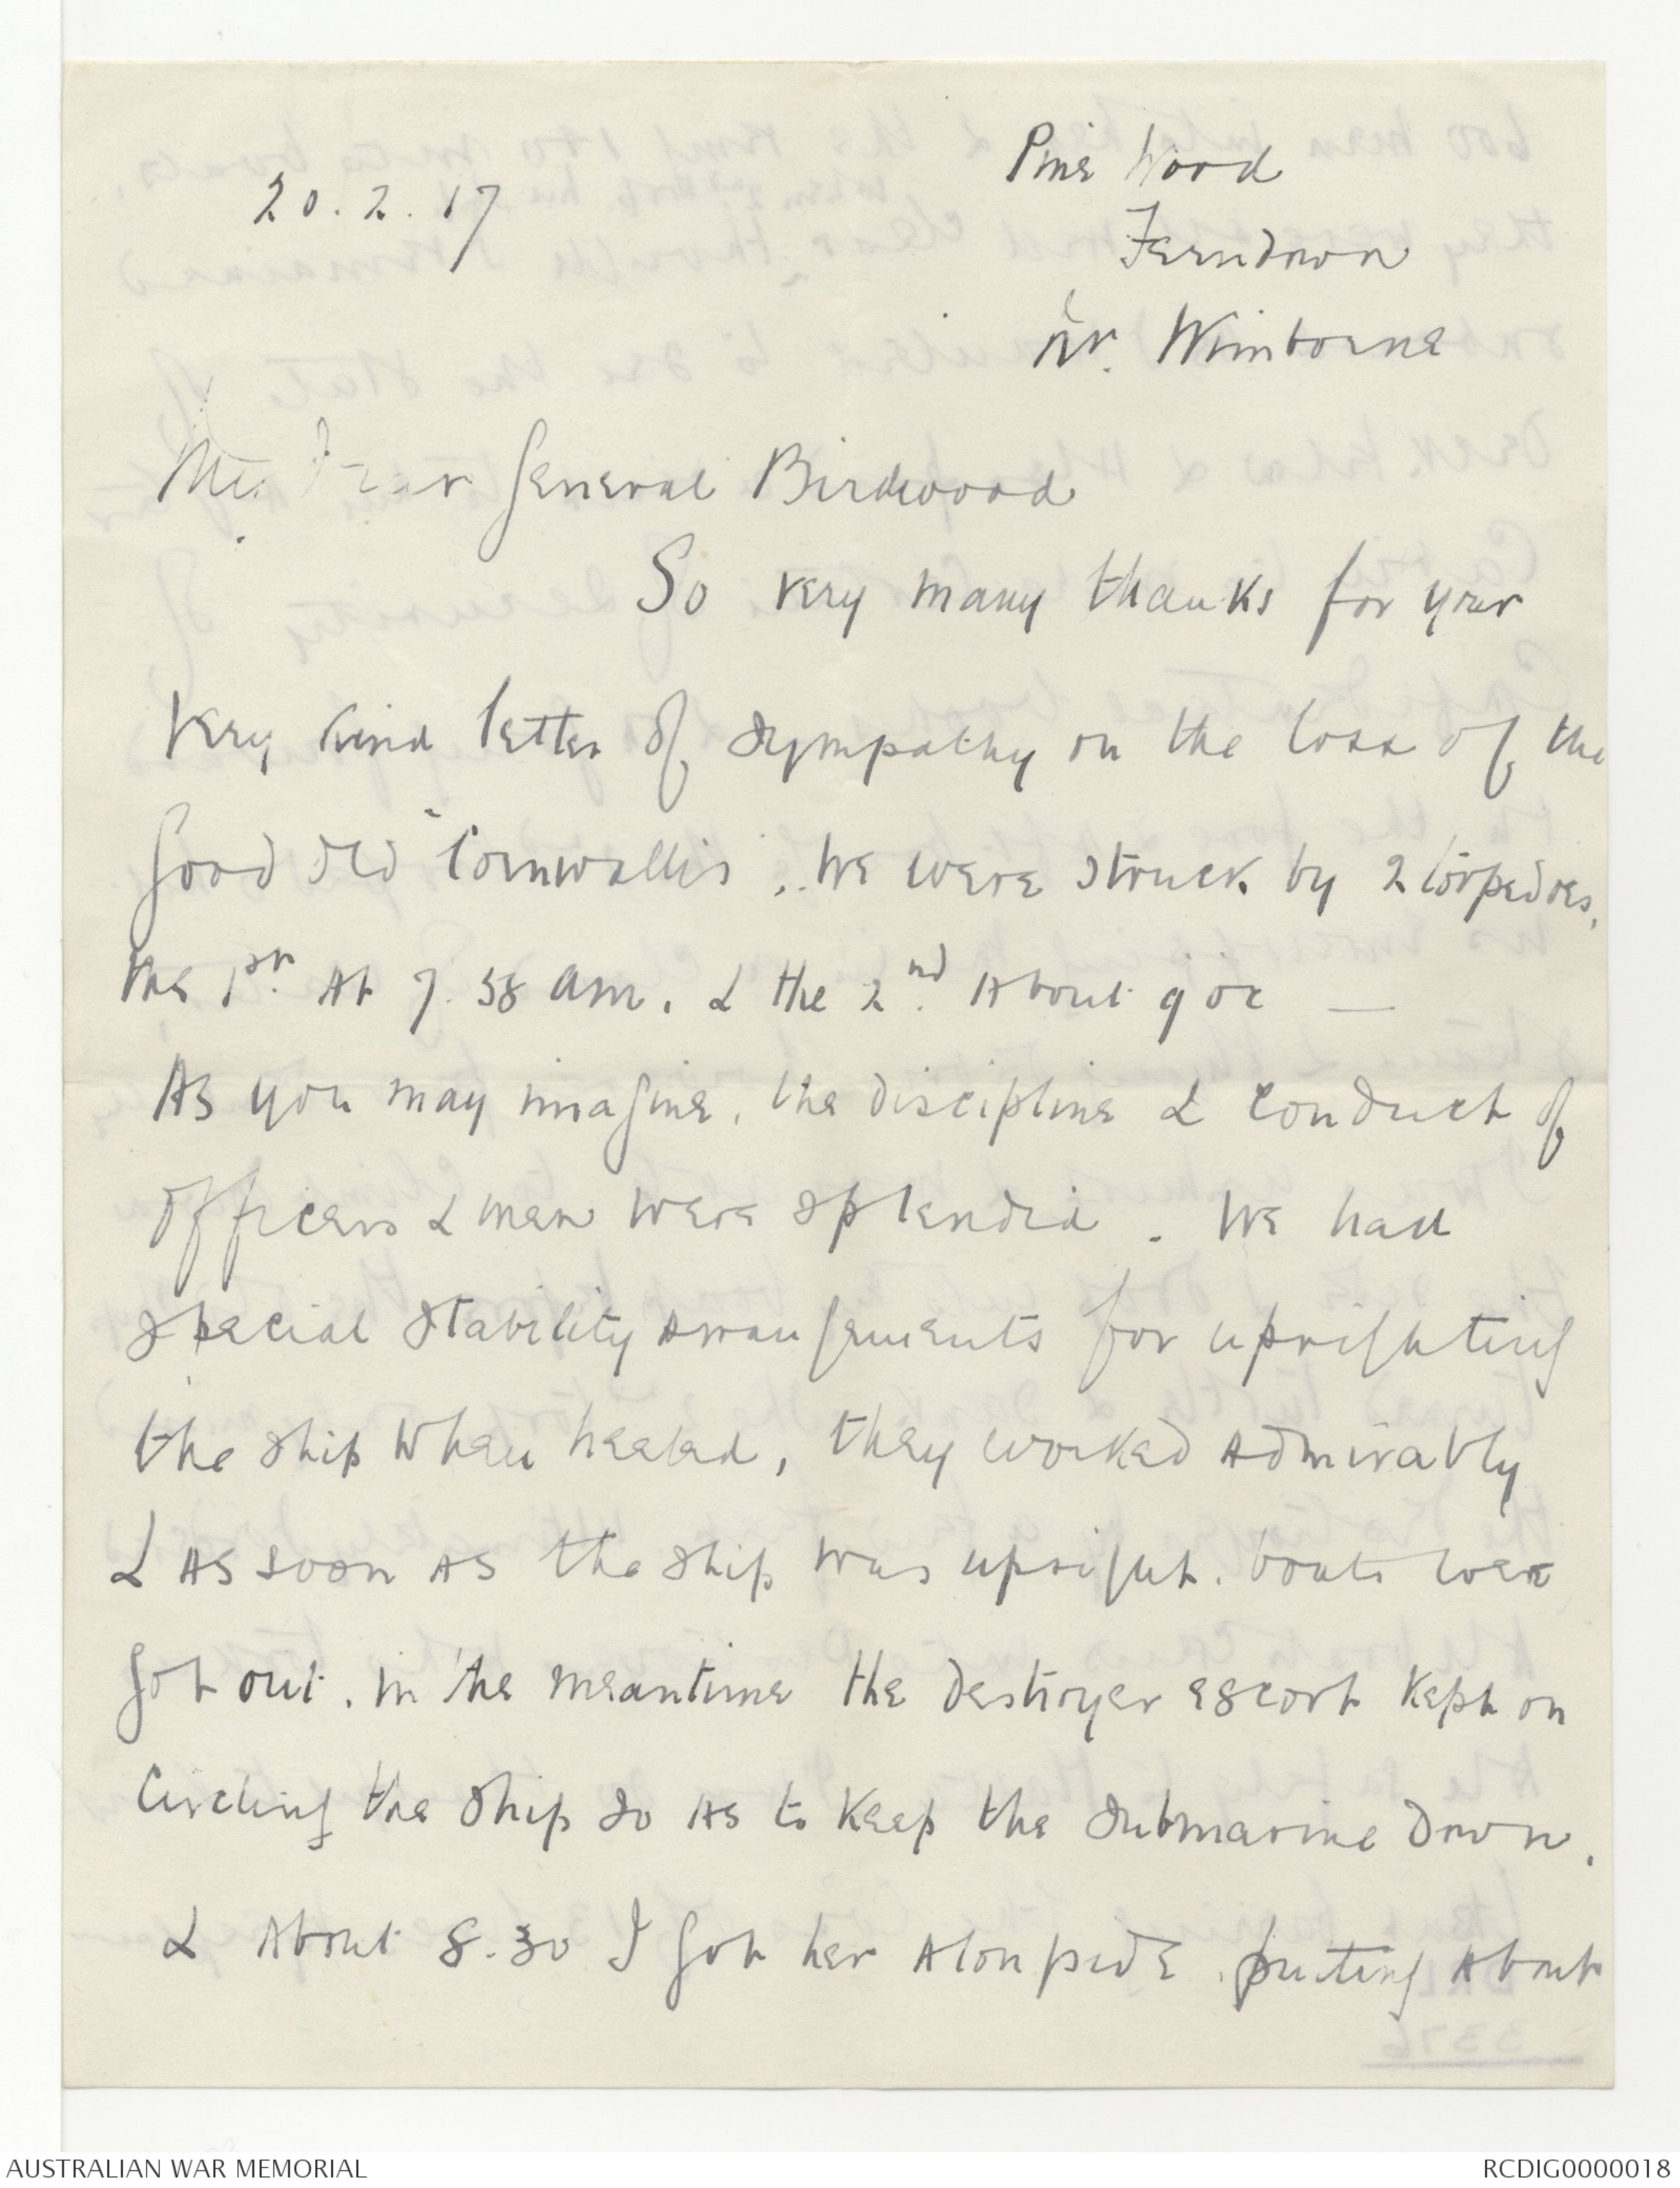 20.2.17
Pine Wood
Ferndown
Nr. Wimborne
My Dear General Birdwood
So very many thanks for your
very kind letter of sympathy on the loss of the
good old "Cornwallis". We were struck by 2 torpedoes,
the 1st at 7.58 am. & the 2nd about 9 oc —
As you may imagine, the discipline & conduct of
officers & men were splendid. We had
special stability arrangements for uprighting
the ship when heeled, they worked admirably
& as soon as the ship was upright. boats were
got out. In the meantime the destroyer escort kept on
circling the ship so as to keep the submarine down.
& about 8.30 I got her alongside putting about
3376
AUSTRALIAN WAR MEMORIAL
RCDIG0000018